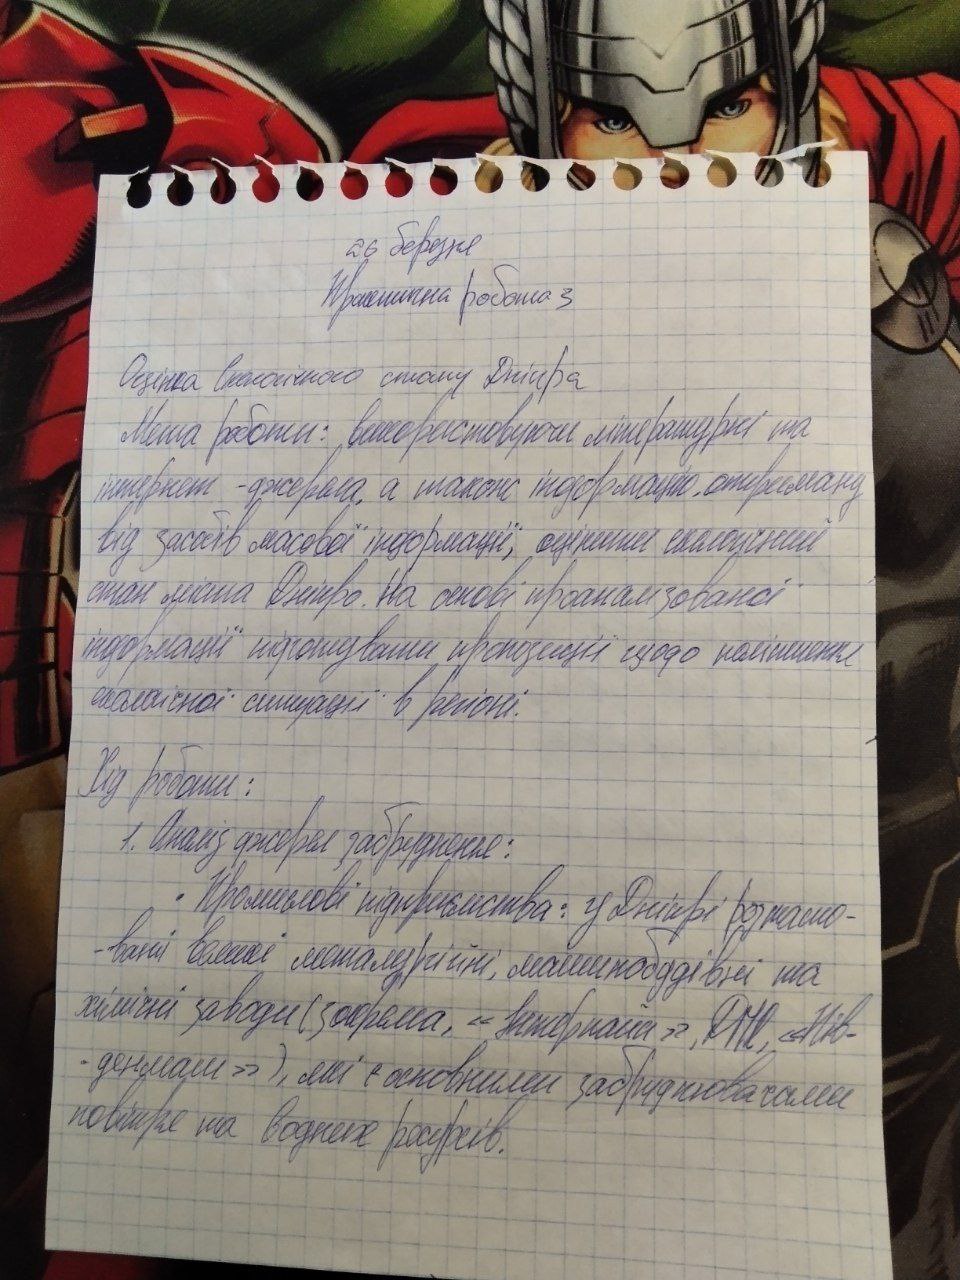 26 березня
Практична робота 3
Оцінка Екологічного стану Дніпра
Мета роботи: використовуючи літературні та
інтернет -джерела, а також інформацію, отриману
від засобів масової інформації, оцінити екологічний
стан міста Дніпро. На основі проаналізованої
інформації підготувати пропозиції щодо поліпшення
екологічної ситуації в регіоні.
Хід роботи:
1. Аналіз джерел забруднення:
• Промислові підприємства: у Дніпрі розташо-
-вані великі металургійні, машинобудівні та
хімічні заводи (зокрема, «Інтерпайп», ДМЗ, «Пів-
-денмаш»), які є основними забруднювачами
повітря та водних ресурсів.